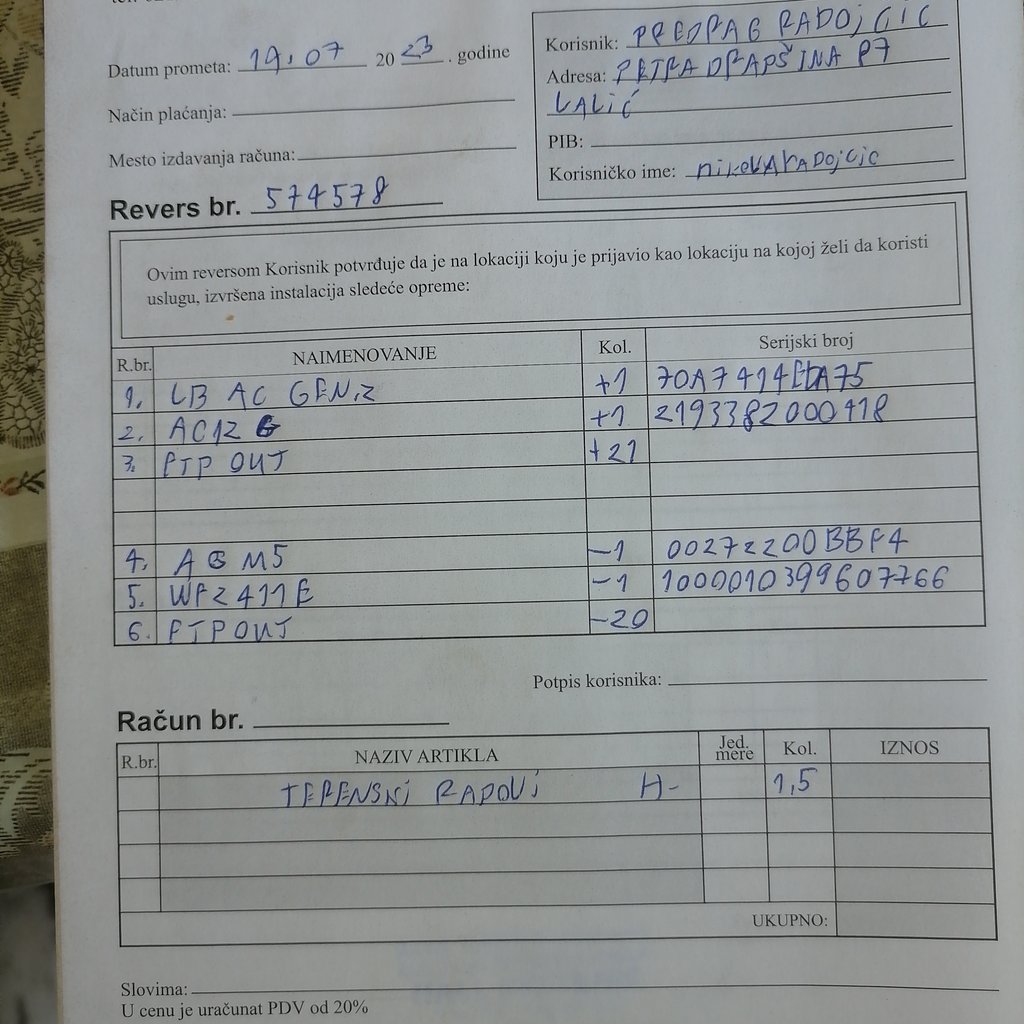 Datum prometa: 19.07 2023. godine
Način plaćanja:
Mesto izdavanja računa:
Korisnik: PREDRAG RADOJČIĆ
Adresa: PETRA DRAPŠINA 87
LALIĆ
PIB:
Korisničko ime: nikolaradojcic
Revers br. 574578
Ovim reversom Korisnik potvrđuje da je na lokaciji koju je prijavio kao lokaciju na kojoj želi da koristi
uslugu, izvršena instalacija sledeće opreme:
R.br. NAIMENOVANJE Kol. Serijski broj
1. LB AC GEN.2 +1 70A7414EDA75
2. AC12 G +1 2193382000418
3. FTP OUT +21
4. AG M5 -1 00272200BBF4
5. WR2411E -1 1000010399607766
6. FTP OUT -20
Potpis korisnika:
Račun br.
R.br. NAZIV ARTIKLA Jed. mere Kol. IZNOS
TERENSKI RADOVI H- 1,5
UKUPNO:
Slovima:
U cenu je uračunat PDV od 20%